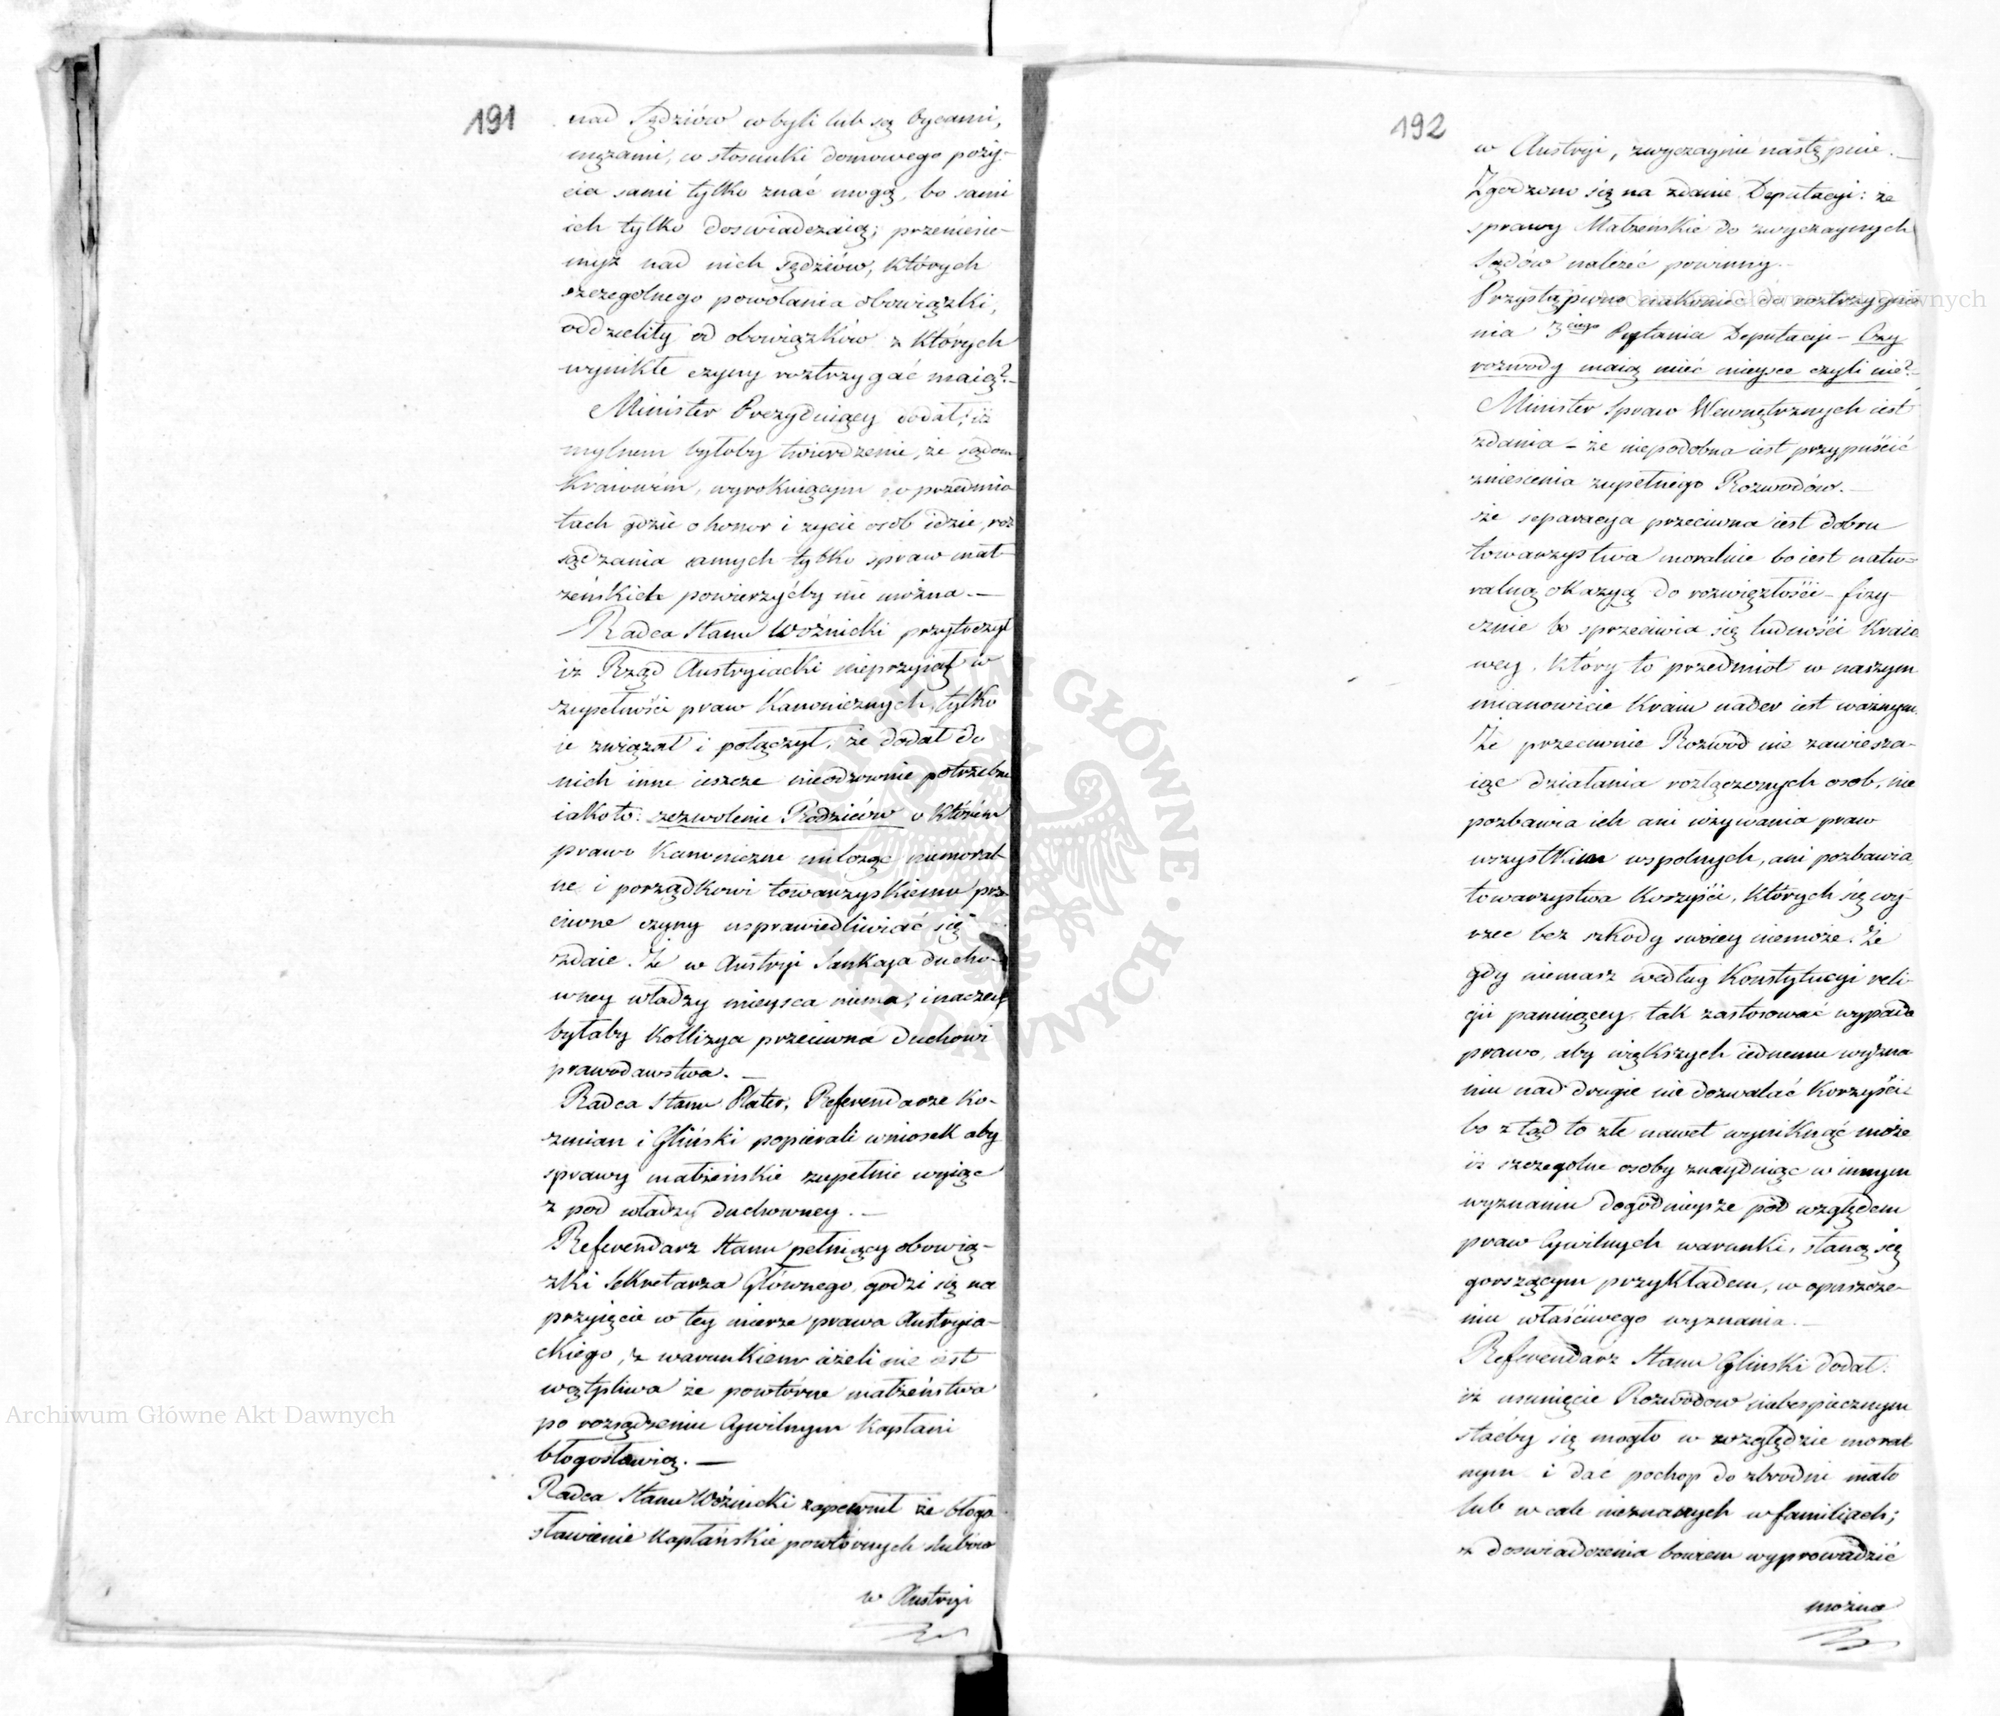 191
nad Sędziów co byli lub są Oycami,
mężami, co stosunki domowego poży-
cia sami tylko znać mogą, bo sami
ich tylko doswiadczaią; przeniesie-
myż nad nich Sędziów, których
szczegolnego powołania obowiązki,
oddzieliły od obowiązków z których
wynikłe czyny roztrzygać maią?-
Minister Prezyduiący dodał; iż
mylnem byłoby twierdzenie, że sądom
Kraiowém, wyrokuiącym w przedmio
tach gdzie o honor i zycie osób idzie, roz
sądzania samych tylko spraw mał
żeńskich powierzyćby nie można. —
Radca Stanu Woźnicki przytoczył
iż Rząd Austryiacki nieprzyiął w
zupełności praw Kanonicznych, tylko
ie związał i połączył, że dodał do
nich inne ieszcze nieodzownie potrzebne
iakoto: zezwolenie Rodziców o którém
prawo Kanoniczne milcząc niemoral
ne i porządkowi towarzyskiemu prze
ciwne czyny usprawiedliwiać się
zdaie. Że w Austryi Sankcya ducho-
wney władzy mieysca niema, inaczey
byłaby Kollizya przeciwna duchowi
prawodawstwa. —
Radca Stanu Plater, Referendarze Ko-
zmian i Gliński popierali wniosek aby
sprawy małżeńskie zupełnie wyiąć
z pod władzy duchowney. —
Referendarz Stanu pełniący obowią-
zki Sekretarza Głównego, godzi się na
przyięcie w tey mierze prawa Austryia-
ckiego, z warunkiem ieżeli nie iest
wątpliwa że powtórne małżeństwa
po rozsądzeniu Cywilnym Kapłani
błogosławią. —
Radca Stanu Woźnicki zapewnił że błogo
sławienie Kapłańskie powtórnych slubów
w Austryi
192
w Austryi, zwyczaynie następuie. —
Zgodzono się na zdanie Deputacyi: że
sprawy Małzeńskie do zwyczaynych
Sądów należeć powinny. —
Przystąpiono nakoniec do roztrzygnie
nia 3ciego Pytania Deputacyi - Czy
rozwody maią mieć mieysce czyli nie?-
Minister Spraw Wewnętrznych iest
zdania - że niepodobna iest przypuścić
zniesienia zupełnego Rozwodów. —
że separacya przeciwna iest dobru
towarzystwa moralnie bo iest natu-
ralną okazyą do rozwięzłości - fizy-
cznie bo sprzeciwia się ludności Kraio
wey, który to przedmiot w naszym
mianowicie Kraiu nader iest ważnym.
Że przeciwnie Rozwod nie zawiesza-
iąc działania rozłączonych osob, nie
pozbawia ich ani używania praw
wszystkim wspolnych, ani pozbawia
towarzystwa Korzyści, których się wy-
rzec bez szkody swoiey niemoże. Że
gdy niemasz według Konstytucyi reli
gii panuiącey, tak zastosować wypada
prawo, aby większych iednemu wyzna
niu nad drugie nie dozwalać Korzyści:
bo z tąd to złe nawet wyniknąć może
iż szczegolne osoby znayduiąc w innym
wyznaniu dogodnieysze pod względem
praw Cywilnych warunki, staną się
gorszącym przykładem, w opuszcze-
niu właściwego wyznania. —
Referendarz Stanu Gliński dodał:
iż usunięcie Rozwodow niebespiecznym
stać by się mogło w względzie moral
nym i dać pochop do zbrodni mało
lub w cale nieznanych w familiach;
z doswiadczenia bowiem wyprowadzić
można
Archiwum Główne Akt Dawnych
Archiwum Główne Akt Dawnych